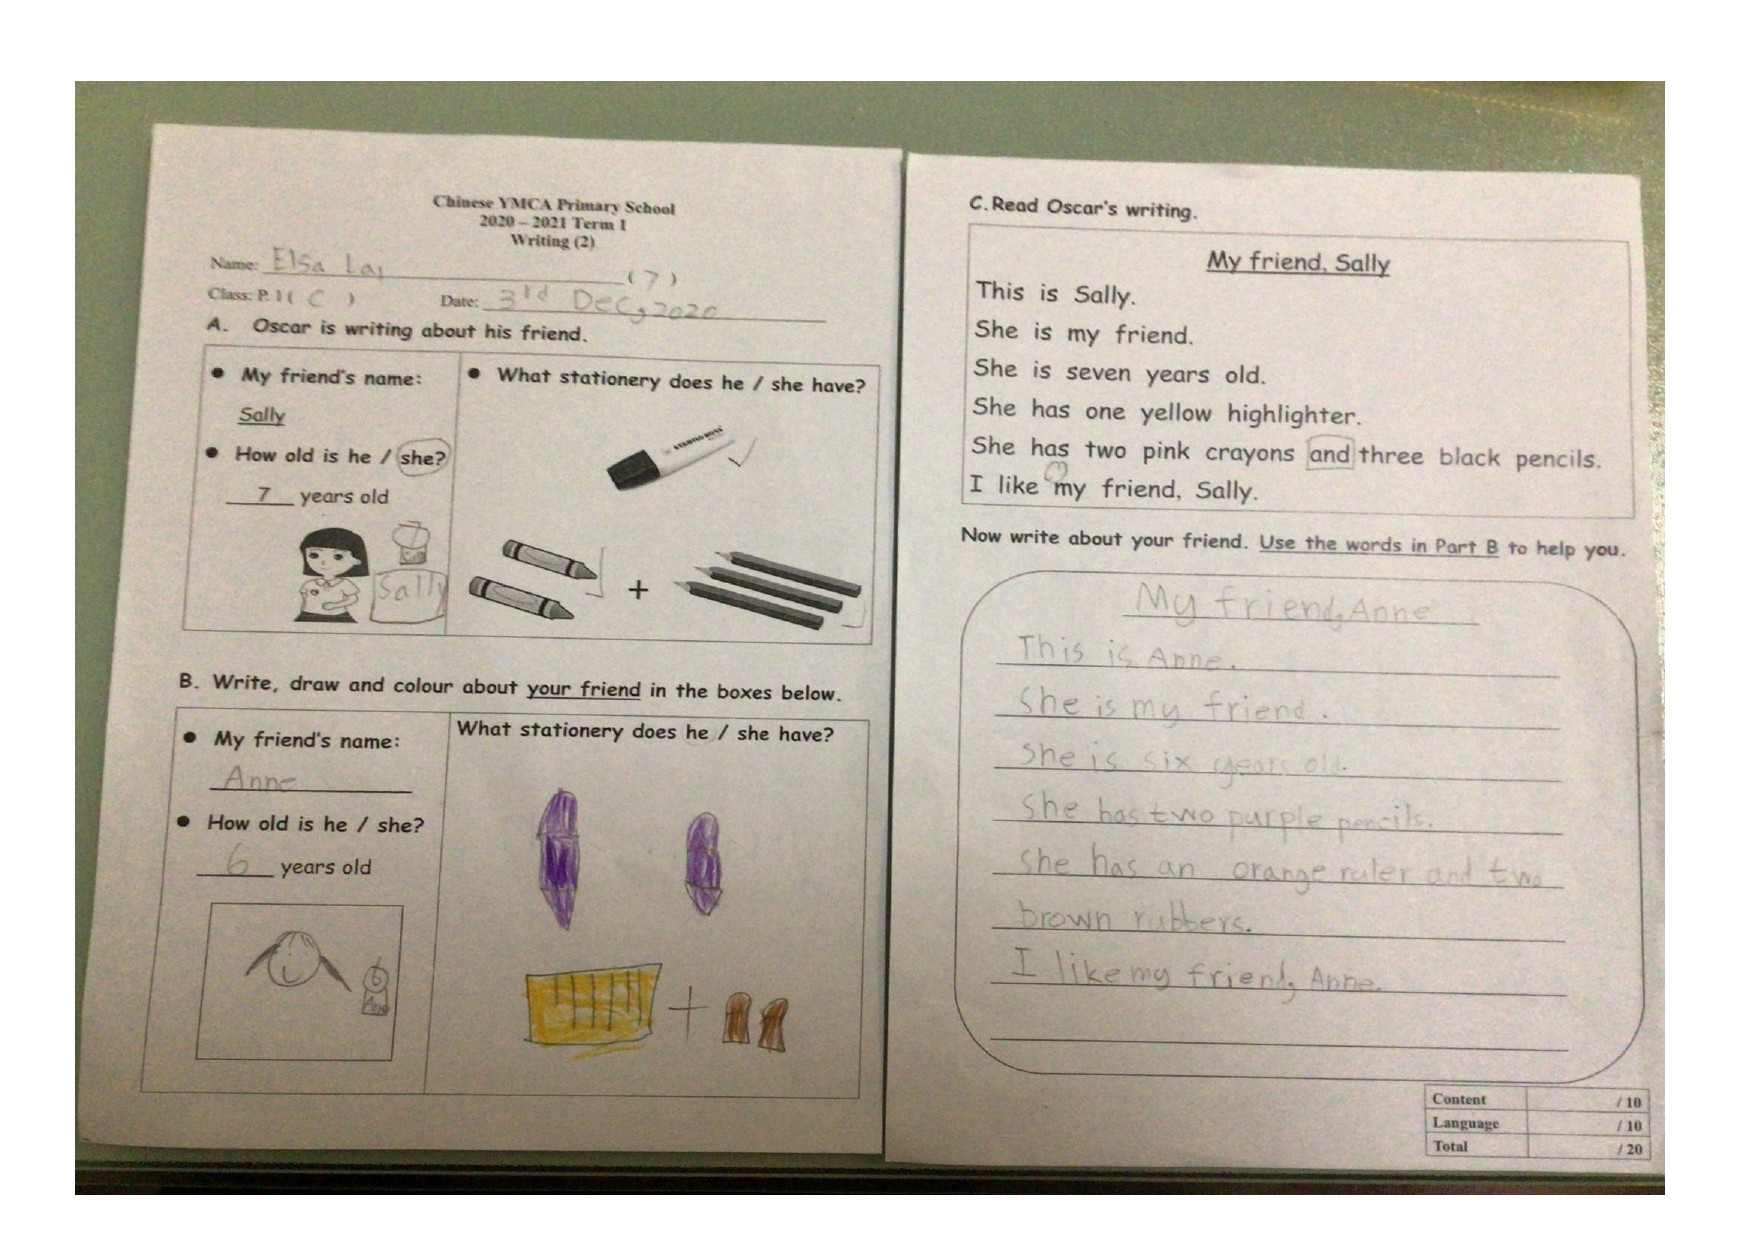 Chinese YMCA Primary School
2020 – 2021 Term 1
Writing (2)
Name: Elsa Lai (7)
Class: P.1 ( C ) Date: 3rd Dec, 2020
A. Oscar is writing about his friend.
● My friend's name:
Sally
● How old is he / she?
7 years old
Sally
● What stationery does he / she have?
+
B. Write, draw and colour about your friend in the boxes below.
● My friend's name:
Anne
● How old is he / she?
6 years old
6
Anne
What stationery does he / she have?
+
C. Read Oscar's writing.
My friend, Sally
This is Sally.
She is my friend.
She is seven years old.
She has one yellow highlighter.
She has two pink crayons and three black pencils.
I like my friend, Sally.
Now write about your friend. Use the words in Part B to help you.
My friend, Anne
This is Anne.
She is my friend.
She is six years old.
She has two purple pencils.
She has an orange ruler and two
brown rubbers.
I like my friend, Anne.
Content / 10
Language / 10
Total / 20